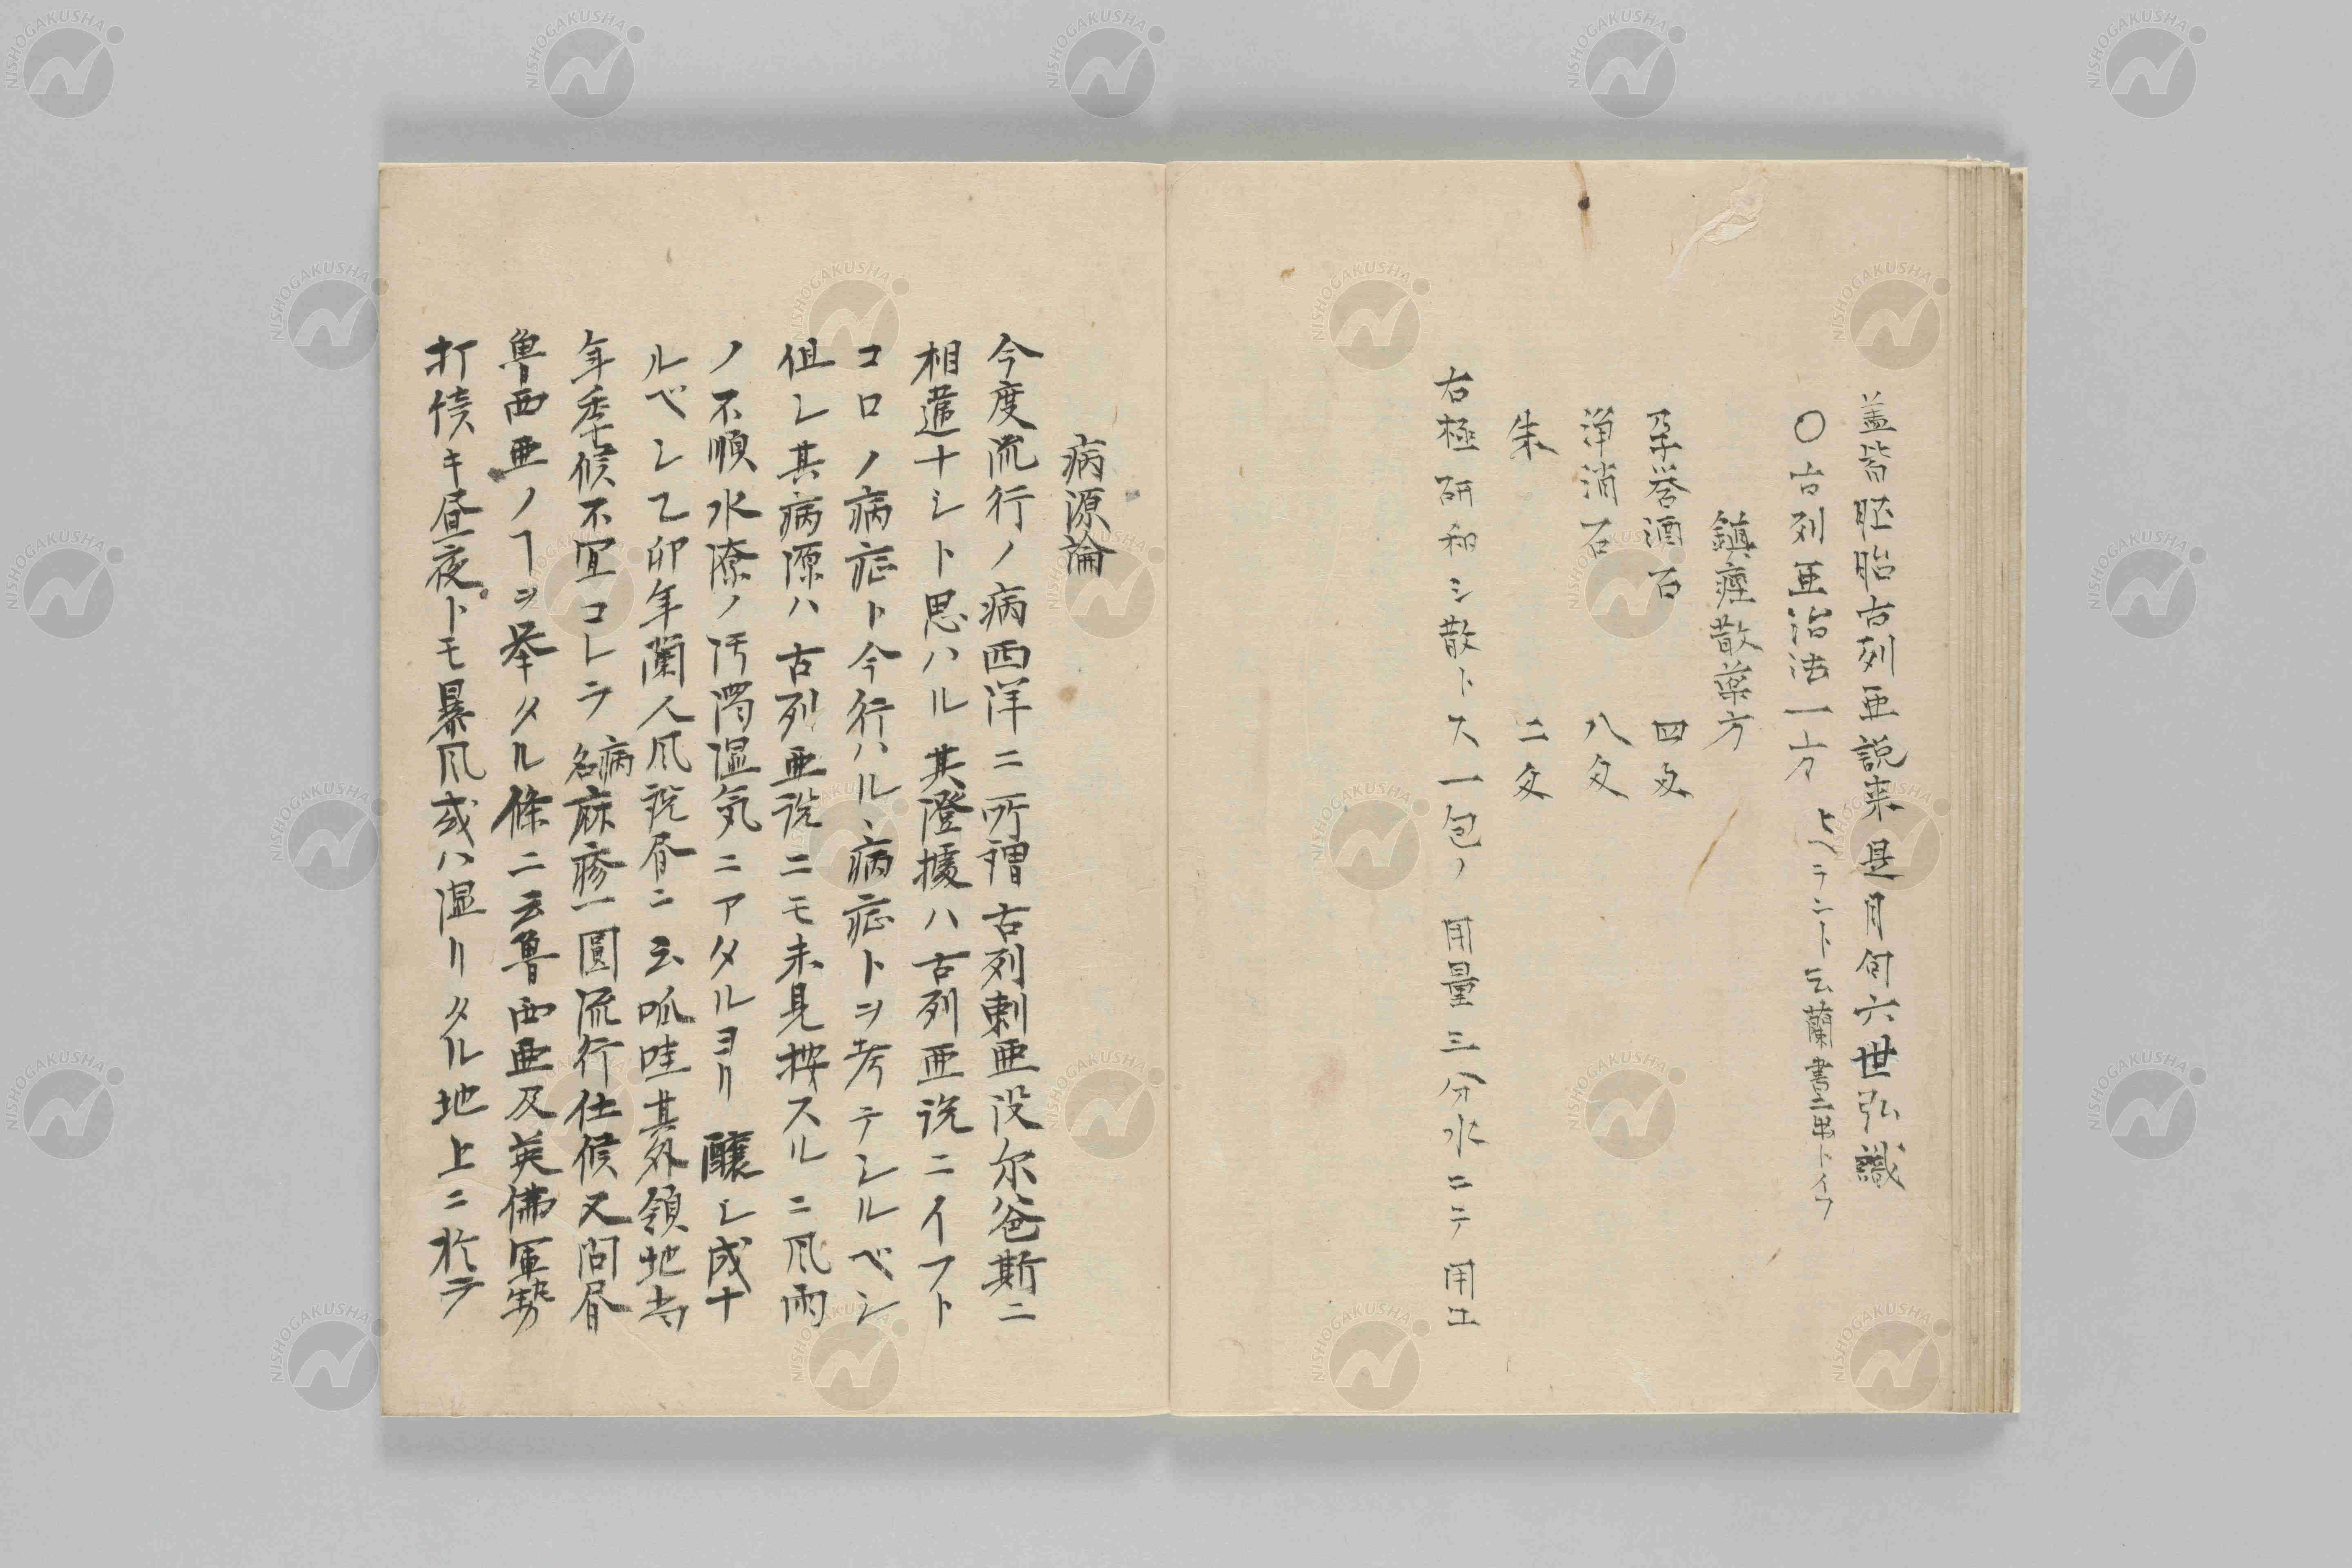 盖皆胚胎古列亜説来是月旬六世弘識
〇古列亜治法一方 上ヘラントト云蘭書ニ弗トイフ
鎮痙散薬方
孕礬酒石 四文
浄消石 八文
朱 二文
右極研和シ散トス一包ノ用量三分水ニテ用工
病源論
今度流行ノ病西洋ニ所謂古列剌亜没尓爸斯ニ
相違ナシト思ハル其澄據ハ古列亜説ニイフト
コロノ病症ト今行ハルヽ病症トヲ考テシルベシ
但シ其病源ハ古列亜説ニモ未見按スルニ風雨
ノ不順水潦ノ汚濁温気ニアタルヨリ醸シ成ナ
ルベシ乙卯年蘭人風説昏ニ云呱哇其外領地当
年季候不宜コレラ病名麻疹一圓流行仕候又問昏
魯西亜ノヿヲ挙タル條ニ云魯西亜及英佛軍勢
打續キ昼夜トモ暴風或ハ湿リタル地上ニ於テ
NISHOGAKUSHA